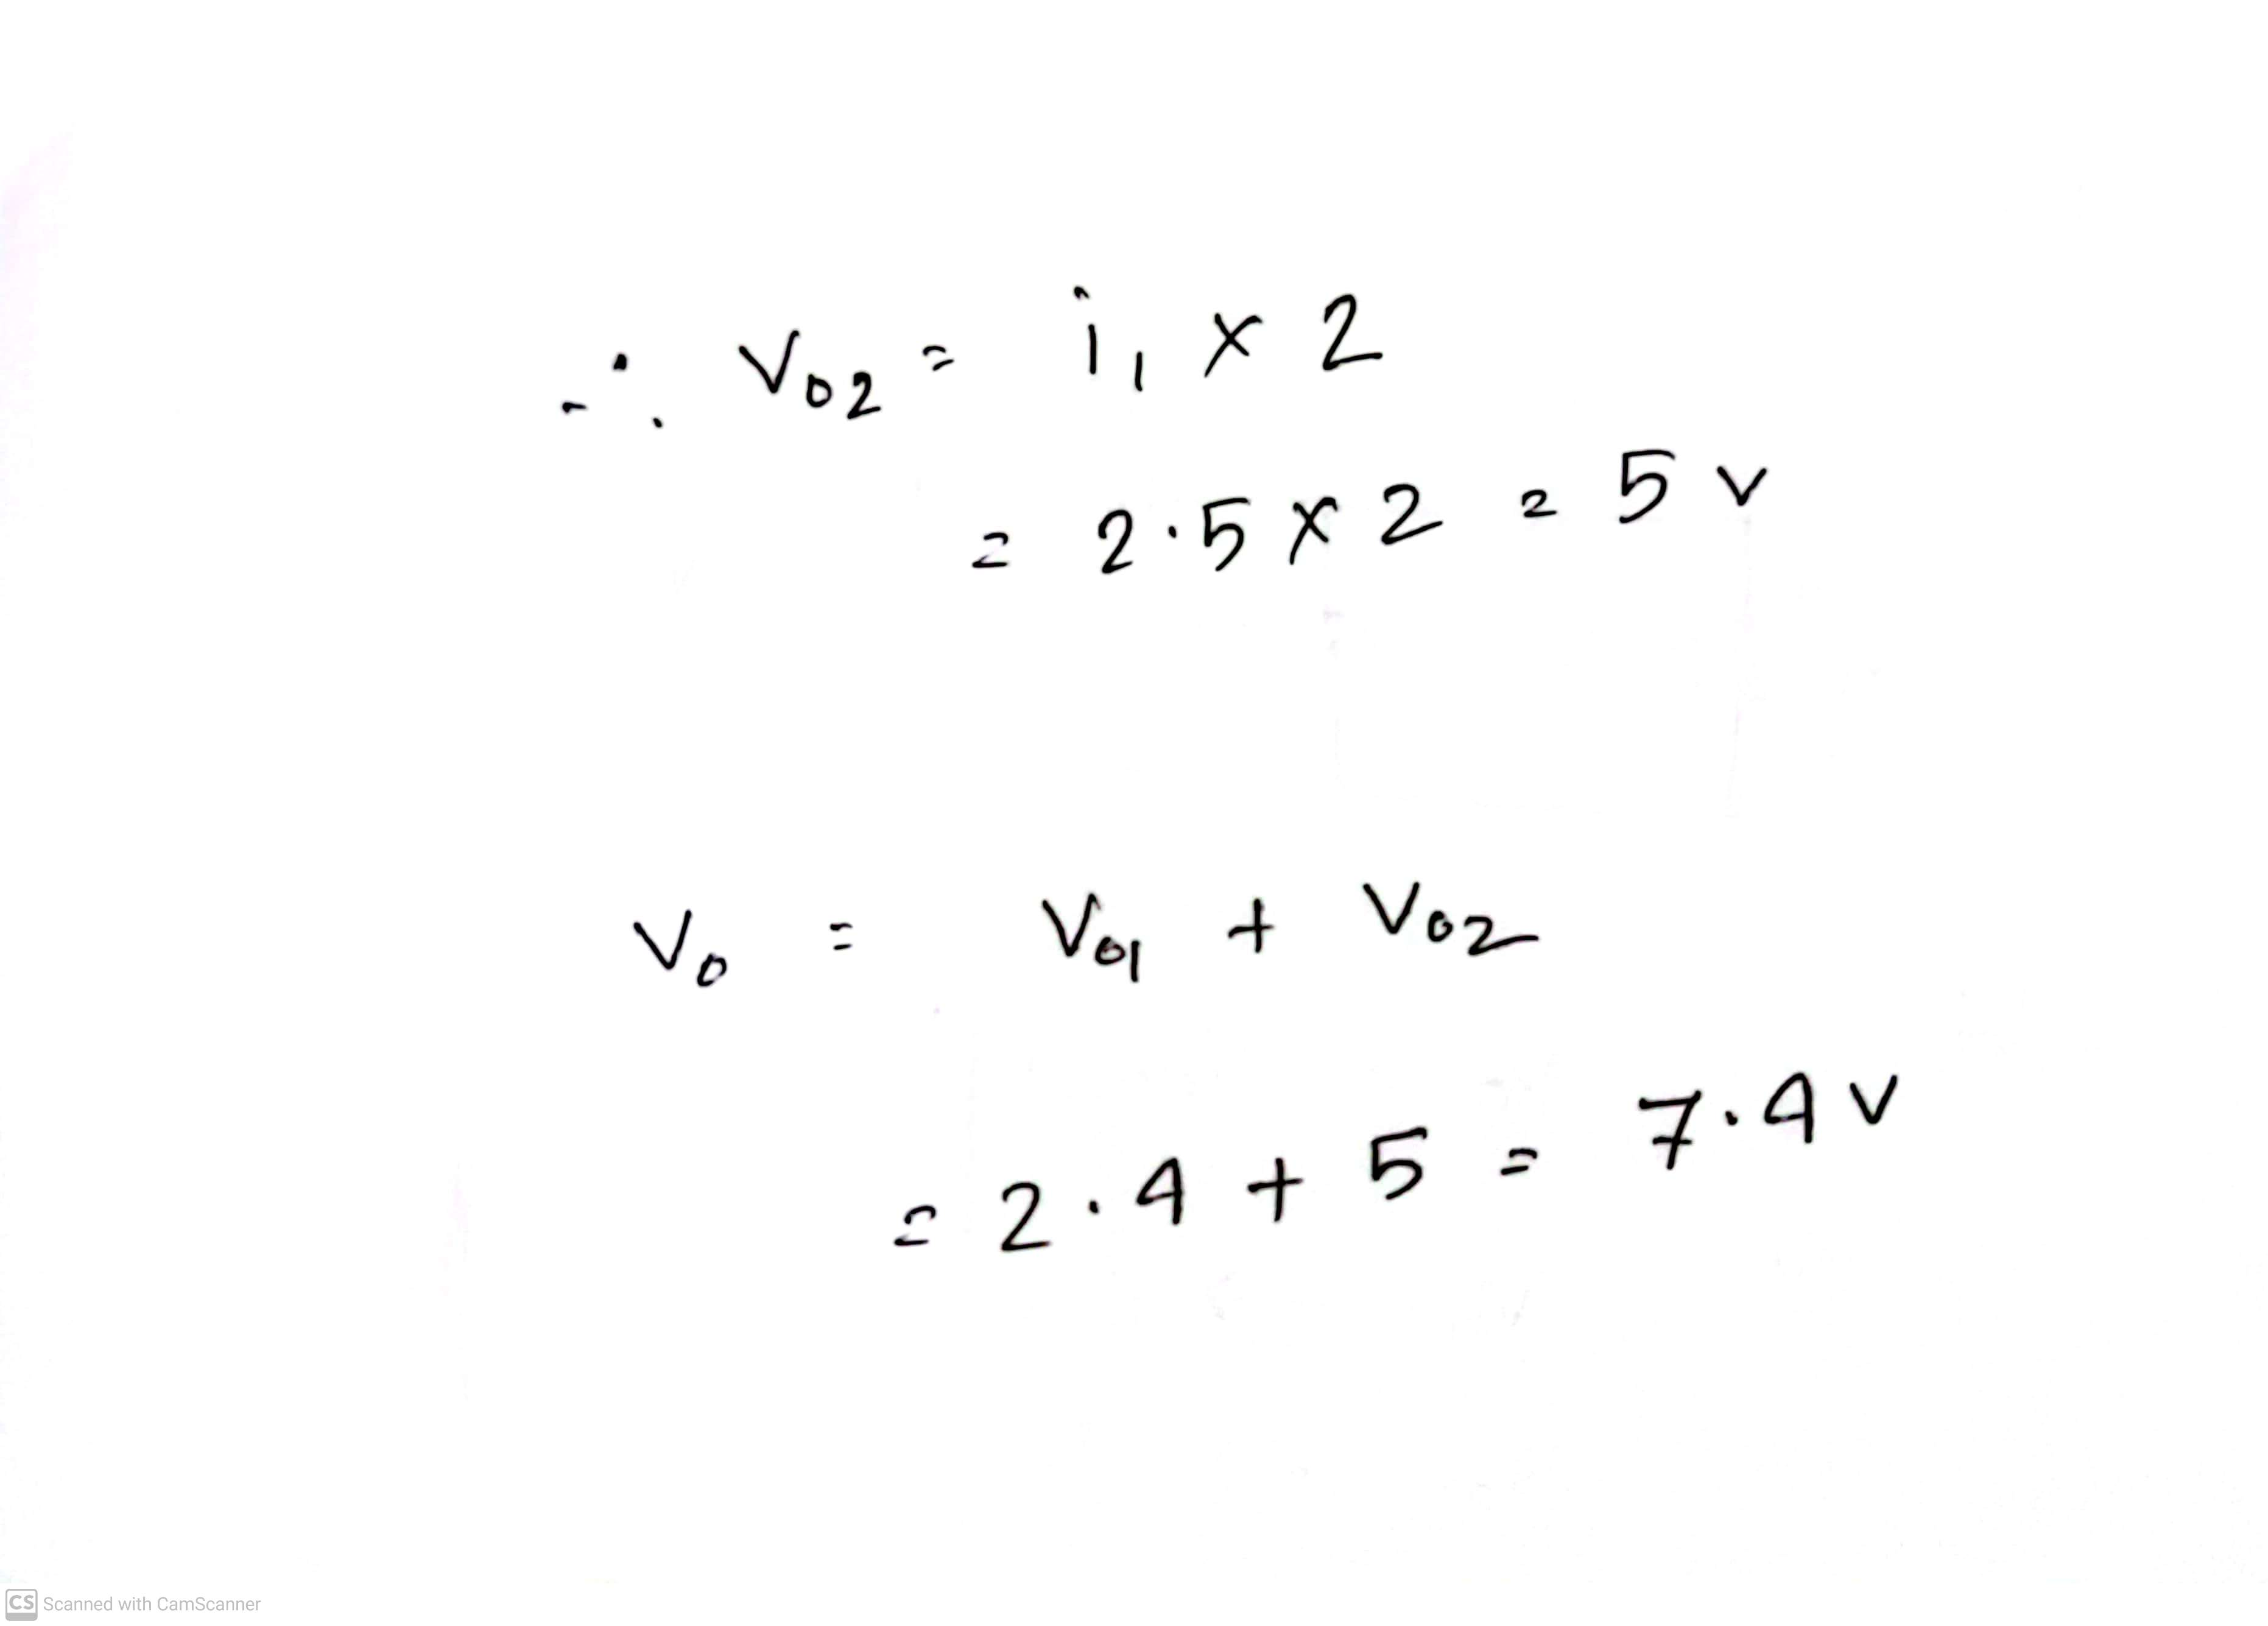 ∴ V₀₂ = i₁ × 2
= 2.5 × 2 = 5 v
V₀ = V₀₁ + V₀₂
= 2.4 + 5 = 7.4 v
CS Scanned with CamScanner